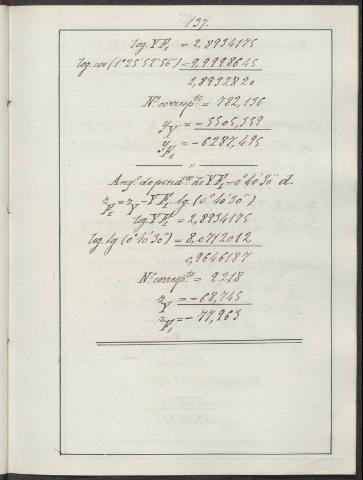 137.
log. YF₁ = 2,8934175
log. cos (1°25'52"56‴) = 9,9998645
2,8932820
Nº corresp.te = 782,136
y_Y = -5505,359
y_F₁ = -6287,495
"
Ang.º de pend.te de YF₁ = 0°40'30" d.
z_F₁ = z_Y - YF₁. tg. (0°40'30")
log. YF₁ = 2,8934175
log. tg. (0°40'30") = 8,0712012
0,9646187
Nº corresp.te = 9,218
z_Y = -68,745
z_F₁ = -77,963